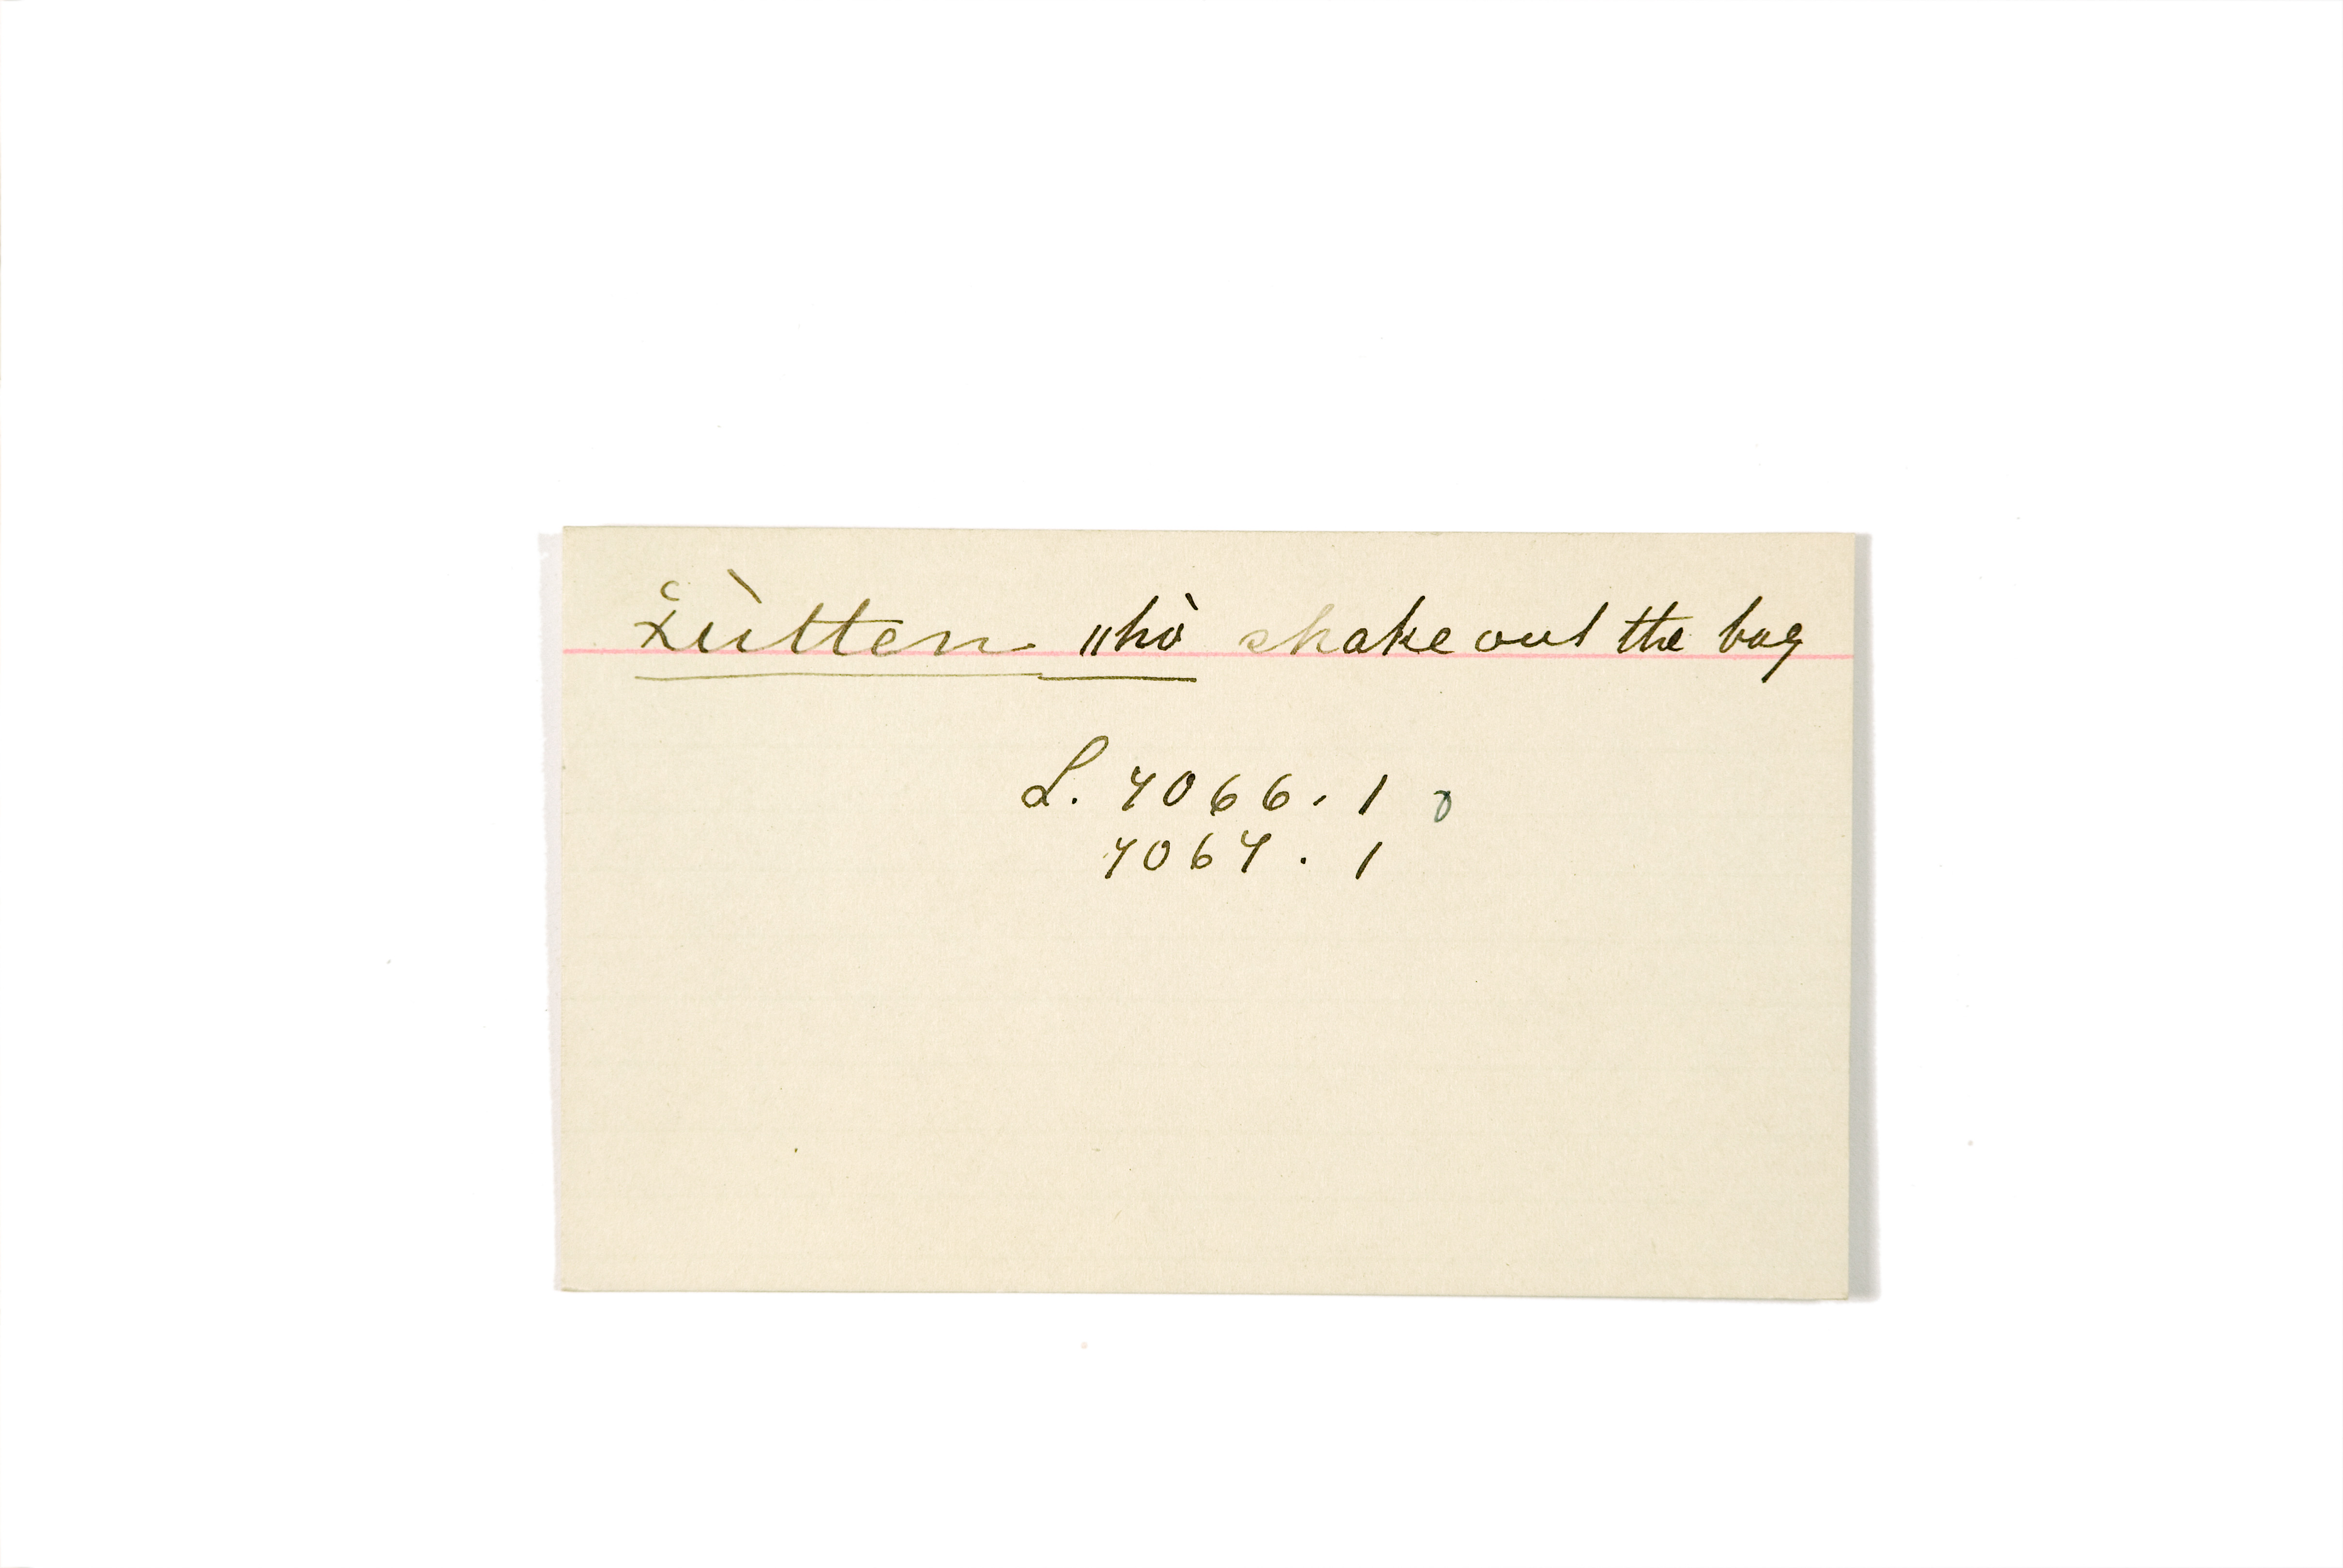 x̆ùtten ǁhò shake out the bag
L. 7066. 1 γ
7067. 1